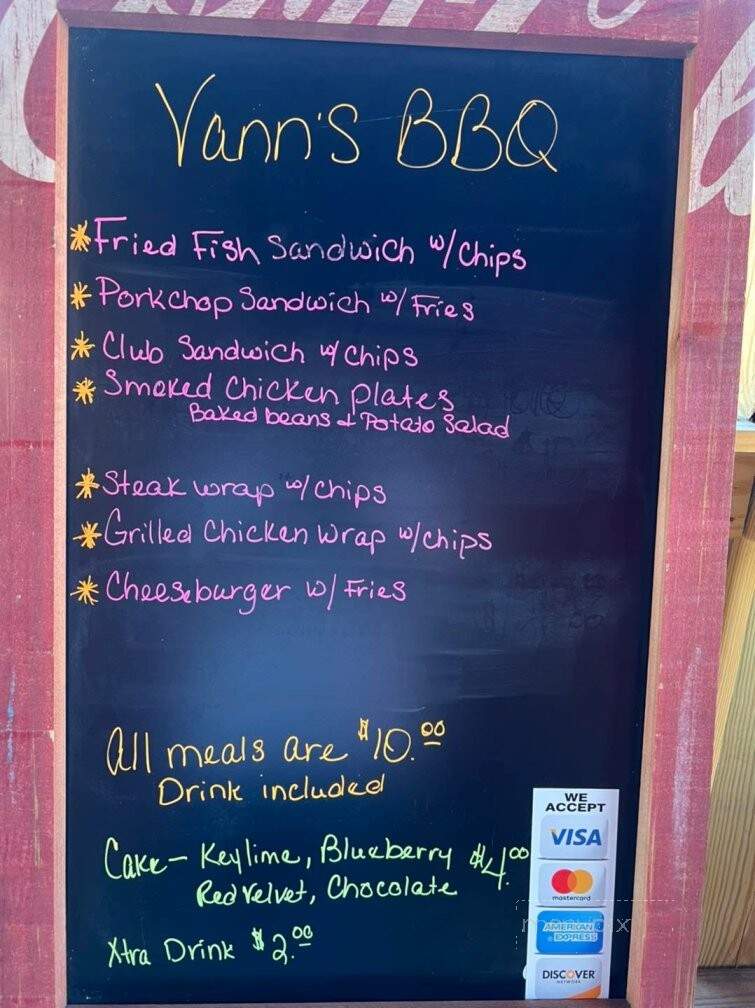 Vann's BBQ
* Fried Fish Sandwich w/ Chips
* Porkchop Sandwich w/ Fries
* Club Sandwich w/ Chips
* Smoked Chicken Plates
Baked beans & Potato Salad
* Steak wrap w/ Chips
* Grilled Chicken Wrap w/ chips
* Cheeseburger w/ Fries
All meals are $10.00
Drink included
Cake - Keylime, Blueberry $4.00
Red Velvet, Chocolate
Xtra Drink $2.00
WE
ACCEPT
VISA
mastercard
AMERICAN
EXPRESS
DISCOVER
NETWORK